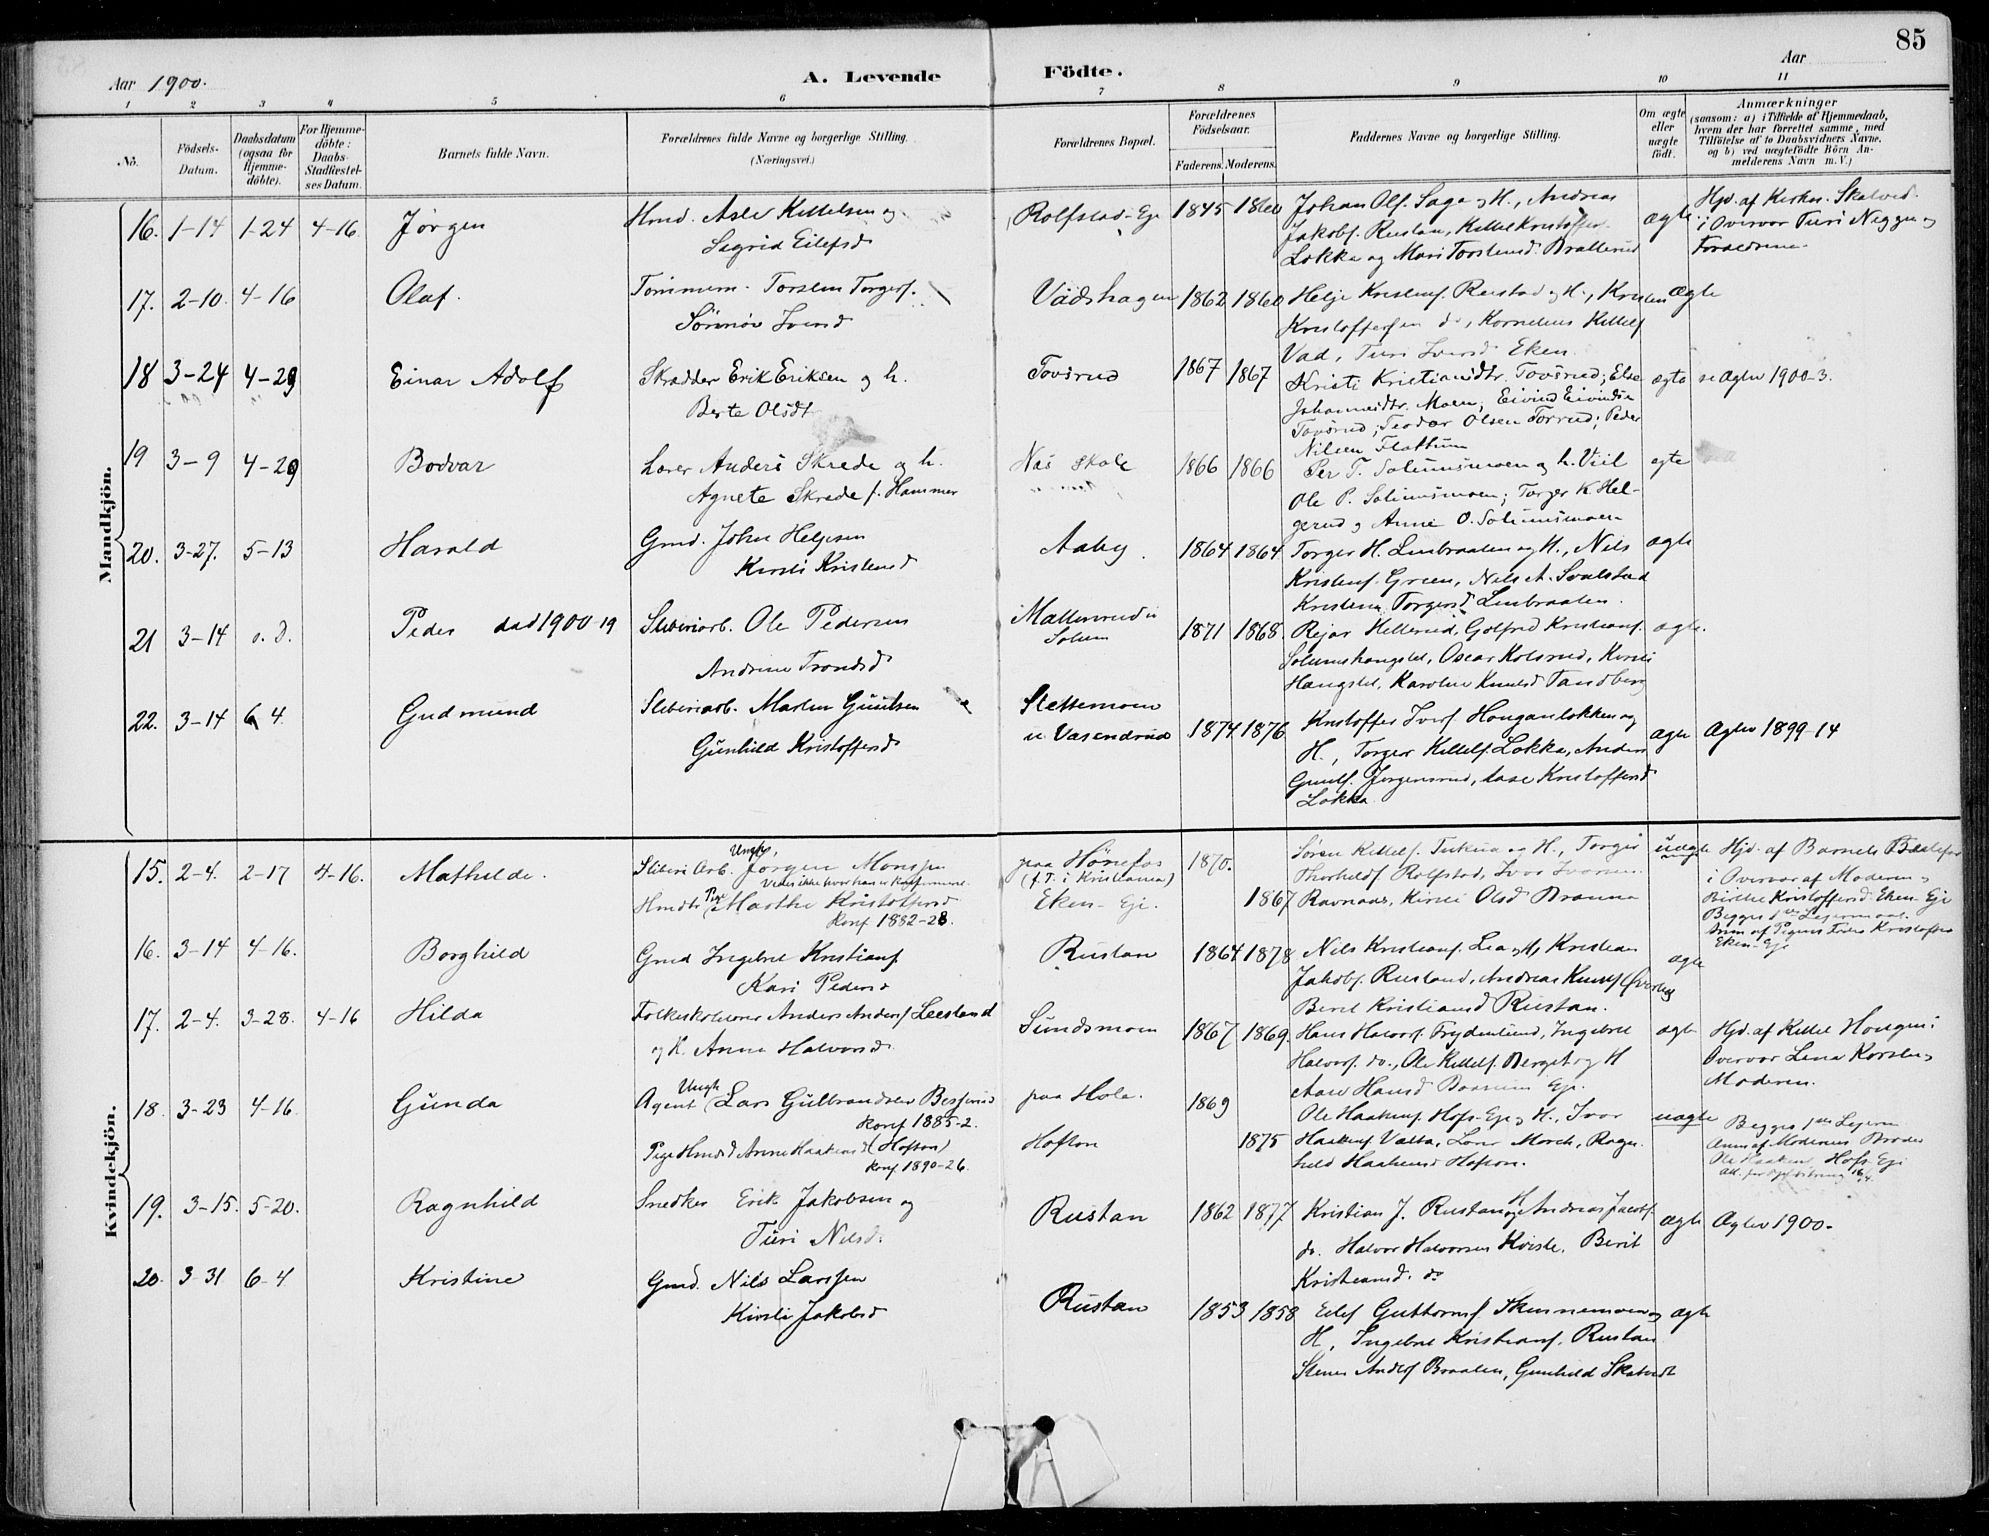 85
Aar 1900.
A. Levende Födte.
Aar
1 2 3 4 5 6 7 8 9 10 11
No.
Födsels-
Datum.
Daabsdatum
(ogsaa for
Hjemme-
döbte).
For Hjemme-
döbte:
Daabs-
Stadfæstel-
ses Datum.
Barnets fulde Navn.
Forældrenes fulde Navne og borgerlige Stilling.
(Næringsvei.)
Forældrenes Bopæl.
Forældrenes
Födselsaar.
Faderens. Moderens.
Faddernes Navne og borgerlige Stilling.
Om ægte
eller
uægte
födt.
Anmærkninger
(saasom: a) i Tilfælde af Hjemmedaab,
hvem der har forrettet samme, med
Tilföielse af to Daabsvidners Navne,
og b) ved uægtefödte Börn An-
melderens Navn m. V.)
Mandkjön.
16. 1-14 1-24 4-16 Jørgen
Hmd. Asle Kittelsen og
Sigrid Eilefsd
Rolfstad-Eje 1845 1860
Johan Olf. Saga og H., Andreas
Jakobf. Rustan, Kittel Kristoffer
Løkka og Mari Torstensd. Bratterud
ægte
Hjd. af Kirkes. Skatved
i Overvær Turi Næggen og
Forældrene.
17. 2-10. 4-16 Olaf.
Tømmerm. Torsten Torgerf.
Sønnøv Iversd
Vådshagen 1862 1860
Helje Kristenf. Rustad og H., Kristen
Kristoffersen do, Kornelius Kittelf
Vad, Turi Iversd. Eken.
ægte
18 3-24 4-29 Einar Adolf
Skrædder Erik Eriksen og h.
Berte Olsdt
Tovsrud 1867 1867
Kristi Kristiansdtr. Tovsrud; Else
Johannesdtr. Moen; Eivind Eivindsen
Tovsrud; Teodor Olsen Torrud; Peder
Nilsen Flattum
ægte se Aglev 1900-3.
19 3-9 4-29 Bodvar
Lærer Anders Skrede og h.
Agnete Skrede f. Hammer
Næs skole 1866 1866
Per T. Solumsmoen og h. Viil
Ole P. Solumsmoen; Torger K. Hel-
gerud og Anne O. Solumsmoen
egte
20. 3-27. 5-13 Harald
Gmd. John Helgesen
Kirsti Kristensd
Aaby. 1864 1864
Torger H. Linbraaten og H., Nils
Kristenf. Green, Nils A. Svalstad
Kristena Torgersd Linbraaten.
ægte
21 3-14 s. d. Peder død 1900-19
Sliberiarb. Ole Pedersen
Andrine Trondsd
Mattisrud u
Solum 1871 1868
Rejar Hellerud, Golfred Kristianf.
Solumshaugstet, Oscar Kolsrud, Kirsti
Haugstet, Karoline Knudsd Tandberg
ægte.
22. 3-14 6 4. Gudmund
Sliberiarb. Martin Gulliksen
Gunhild Kristoffersd
Slettemoen
u Vasendrud 1874 1876
Kristoffer Iverf Houganløkken og
H., Torger Kittelf. Løkka, Anders
Gundf. Jørgensrud, Aase Kristoffersd
Løkka.
ægte Aglev 1899-14
Kvindekjön.
15. 2-4. 2-17 4-16. Mathilde.
Sliberi Arb. Ungk. Jørgen Monsen
Vides ikke hvor han er Konfirmeret.
Hmdtr Pige Marthe Kristoffersd
Konf 1882-28.
paa Hønefos
(f. T. i Kristiania)
Eken-Eje. 1870. 1867
Søren Kittelf. og H., Torger
Thorkeldf Rolfstad, Ivar Iversen
Ravnaas, Kirsti Olsd Braana
uægte
Hjd. af Barnets Bestefar
i Overvær af Moderen og
Birthe Kristoffersd. Eken-Eje
Begges 1ste Lejermaal.
Anm af Pigens Fader Kristoffer
Eken-Eje
16. 3-14 4-16. Borghild
Gmd Ingebret Kristianf
Kari Pedersd
Rustan 1864 1878
Nils Kristianf. Lea og H, Kristian
Jakobf. Rustand, Andreas Knudf Øverby
Beret Kristiansd Rustan.
ægte
17. 2-4. 3-28. 4-16 Hilda
Folkeskolelærer Anders Andersf Leesland
og H. Anna Halvorsd.
Sundsmoen 1867 1869.
Hans Halvorf. Frydenlund, Ingebret
Halvorf. do., Ole Kittelf. Berget og H
Aase Hansd Baarnes Eje.
ægte
Hjd. af Kittel Hougen i
Overvær Lina Korslen og
Moderen.
18. 3-23 4-16. Gunda
Agent Ungk (Lars Gulbrandsen Besserud
Konf 1885-2.
Pige Hmdsd Anne Haakensd (Hofton)
Konf 1890-26.
paa Hole. 1869
Hofton 1875
Ole Haakenf. Hofs-Eje og H., Ivar
Haakenf. Valla, Lars Mørch, Ragn-
hild Haakensd Hofton.
uægte
Begges 1ste Lejerm.
Anm af Moderens Broder
Ole Haakenf. Hofs-Eje
19. 3-15. 5-20. Ragnhild
Snedker Erik Jakobsen og
Turi Nilsd.
Rustan 1862 1877
Kristian J. Rustan og H Andreas Jacobf
do. Halvor Halvorsen Kviste. Berit
Kristiansd. do
ægte Aglev 1900.
20. 3-31 6-4 Kristine
Gmd. Nils Larssen
Kirsti Jakobsd
Rustan 1853 1858
Eilef Guttormf. Skinnemoen og
H, Ingebret Kristianf. Rustan
Stener Andersf Braaten, Gunhild Skatvedt
ægte